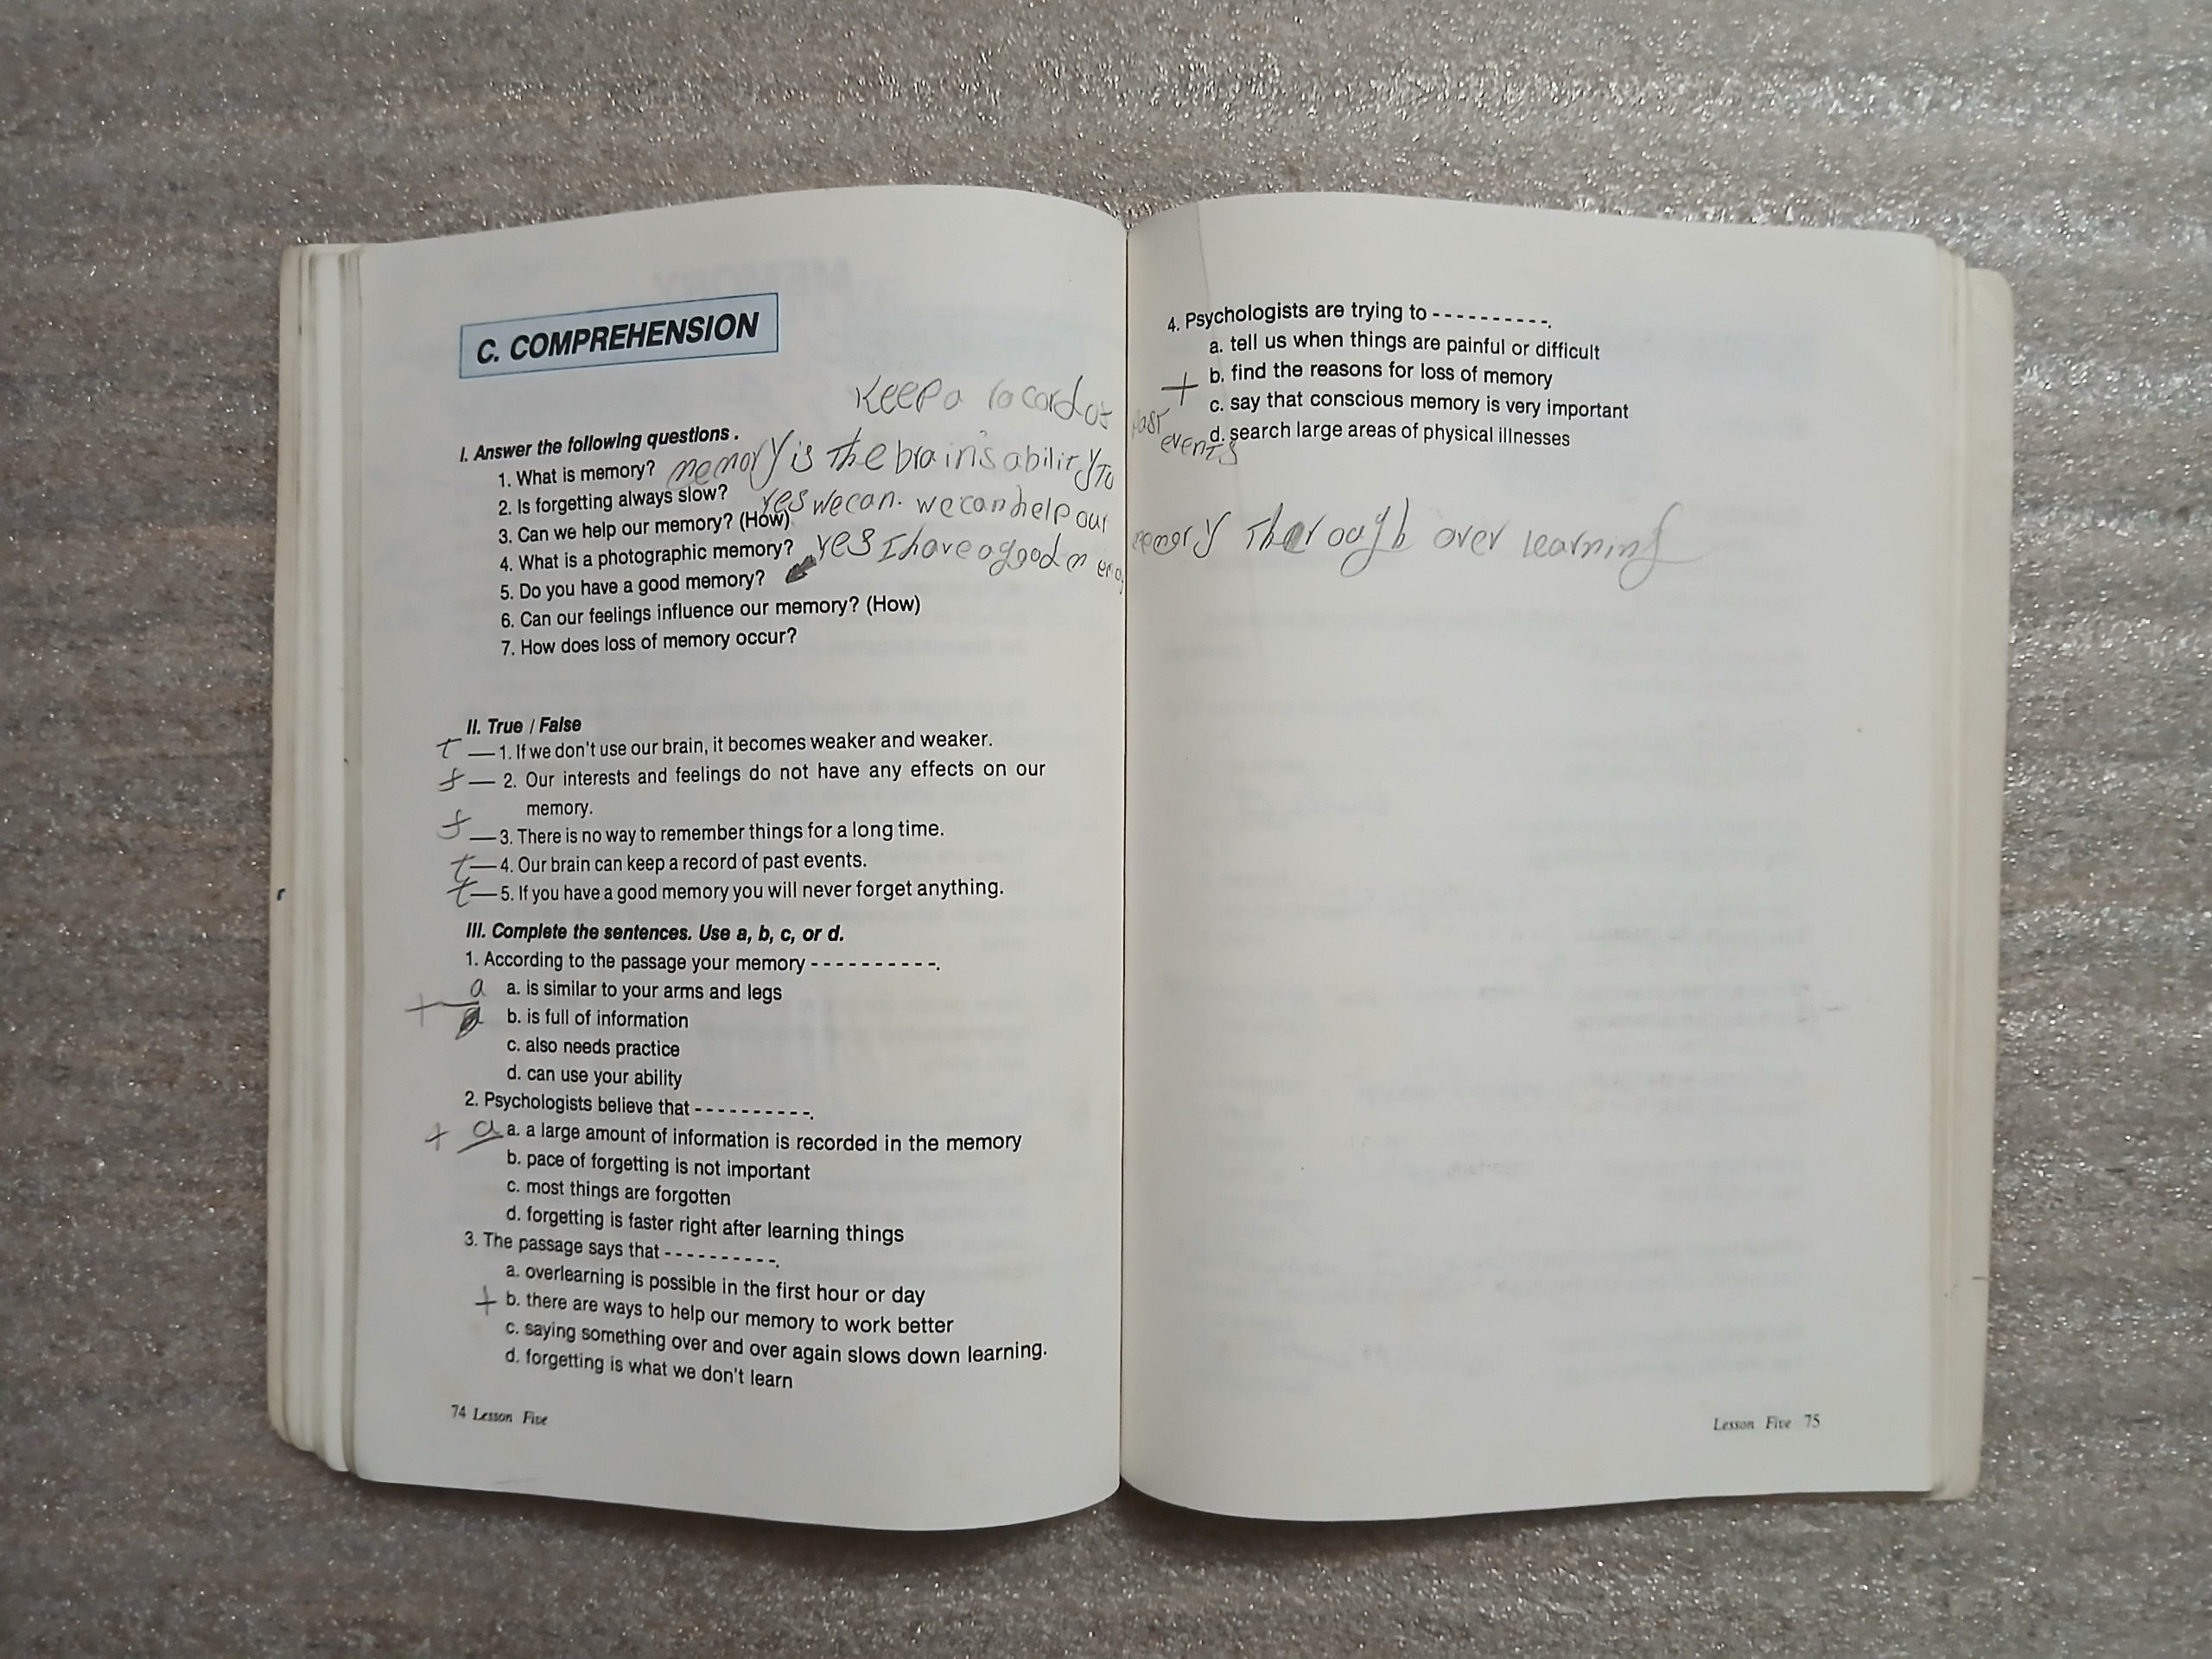 C. COMPREHENSION
Keep a record of past
events
I. Answer the following questions .
1. What is memory? memory is the brain's ability To
2. Is forgetting always slow?
3. Can we help our memory? (How) Yes we can. we can help our memory Therough over learning
4. What is a photographic memory?
5. Do you have a good memory? Yes I have a good
6. Can our feelings influence our memory? (How)
7. How does loss of memory occur?
II. True / False
t — 1. If we don't use our brain, it becomes weaker and weaker.
f — 2. Our interests and feelings do not have any effects on our
memory.
f — 3. There is no way to remember things for a long time.
t — 4. Our brain can keep a record of past events.
t — 5. If you have a good memory you will never forget anything.
III. Complete the sentences. Use a, b, c, or d.
1. According to the passage your memory - - - - - - - - - -.
a a. is similar to your arms and legs
+ b. is full of information
c. also needs practice
d. can use your ability
2. Psychologists believe that - - - - - - - - - -.
+ a a. a large amount of information is recorded in the memory
b. pace of forgetting is not important
c. most things are forgotten
d. forgetting is faster right after learning things
3. The passage says that - - - - - - - - - -.
a. overlearning is possible in the first hour or day
+ b. there are ways to help our memory to work better
c. saying something over and over again slows down learning.
d. forgetting is what we don't learn
74 Lesson Five
4. Psychologists are trying to - - - - - - - - - -.
a. tell us when things are painful or difficult
+ b. find the reasons for loss of memory
c. say that conscious memory is very important
d. search large areas of physical illnesses
Lesson Five 75